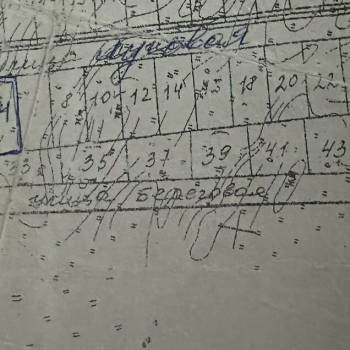 Луговая
8 10 12 14 21 18 20 22
33 35 37 39 41 43
улица Береговая